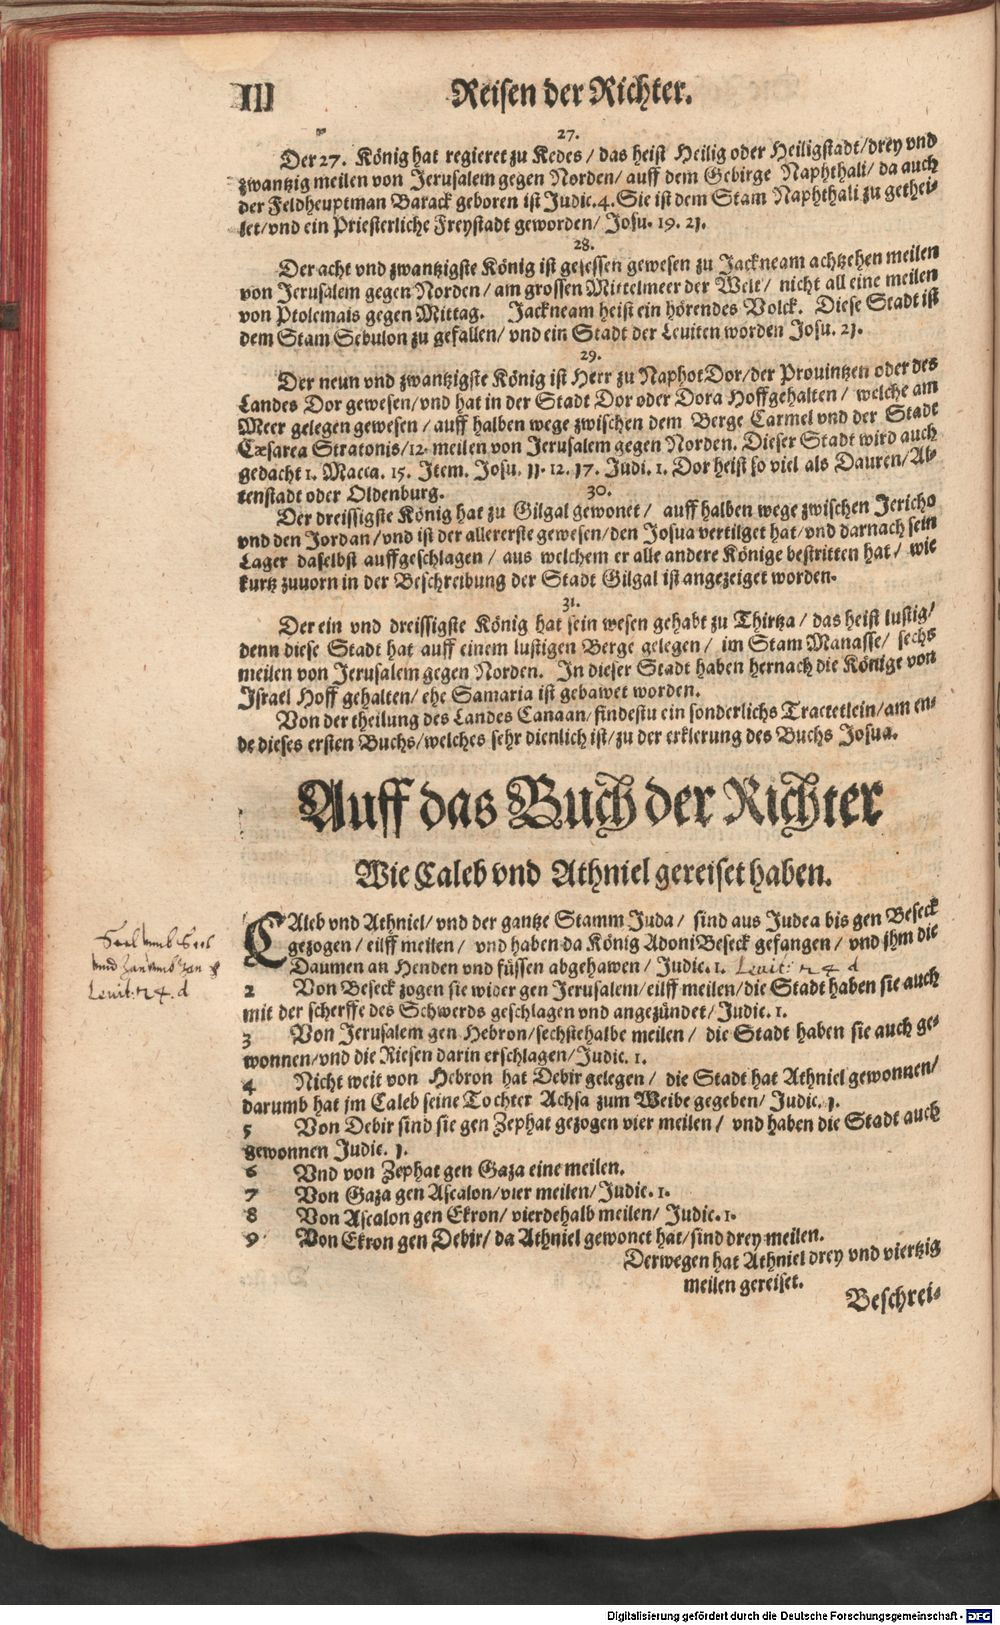 III Reisen der Richter.
27.
Der 27. König hat regieret zu Kedes / das heist Heilig oder Heiligstadt/drey vnd
zwantzig meilen von Jerusalem gegen Norden/ auff dem Gebirge Naphthali/ da auch
der Feldheuptman Barack geboren ist Judic.4. Sie ist dem Stam Naphthali zu gethei-
let/vnd ein Priesterliche Freystadt geworden/ Josu. 19. 21.
28.
Der acht vnd zwantzigste König ist gesessen gewesen zu Jackneam achtzehen meilen
von Jerusalem gegen Norden/ am grossen Mittelmeer der Welt/ nicht all eine meilen
von Ptolemais gegen Mittag. Jackneam heist ein hörendes Volck. Diese Stadt ist
dem Stam Sebulon zu gefallen/ vnd ein Stadt der Leuiten worden Josu. 21.
29.
Der neun vnd zwantzigste König ist Herr zu NaphotDor/der Prouintzen oder des
Landes Dor gewesen/vnd hat in der Stadt Dor oder Dora Hoffgehalten/ welche am
Meer gelegen gewesen/ auff halben wege zwischen dem Berge Carmel vnd der Stadt
Cæsarea Stratonis/12. meilen von Jerusalem gegen Norden. Dieser Stadt wird auch
gedacht 1. Macca. 15. Item. Josu. 11. 12. 17. Judi. 1. Dor heist so viel als Dauren/Al-
tenstadt oder Oldenburg.
30.
Der dreissigste König hat zu Gilgal gewonet/ auff halben wege zwischen Jericho
vnd den Jordan/vnd ist der allererste gewesen/den Josua vertilget hat/vnd darnach sein
Lager daselbst auffgeschlagen/ aus welchem er alle andere Könige bestritten hat/ wie
kurtz zuuorn in der Beschreibung der Stadt Gilgal ist angezeiget worden.
31.
Der ein vnd dreissigste König hat sein wesen gehabt zu Thirtza/ das heist lustig/
denn diese Stadt hat auff einem lustigen Berge gelegen/ im Stam Manasse/ sechs
meilen von Jerusalem gegen Norden. In dieser Stadt haben hernach die Könige von
Israel Hoff gehalten/ ehe Samaria ist gebawet worden.
Von der theilung des Landes Canaan/findestu ein sonderlichs Tractetlein/am en-
de dieses ersten Buchs/welches sehr dienlich ist/zu der erklerung des Buchs Josua.
Auff das Buch der Richter
Wie Caleb vnd Athniel gereiset haben.
CAleb vnd Athniel/ vnd der gantze Stamm Juda/ sind aus Judea bis gen Beseck
gezogen/ eilff meilen/ vnd haben da König AdoniBeseck gefangen/ vnd jhm die
Daumen an Henden vnd füssen abgehawen/ Judic. 1. Levit: 24 d
Levit: 24. d
2 Von Beseck zogen sie wider gen Jerusalem/eilff meilen/die Stadt haben sie auch
mit der scherffe des Schwerds geschlagen vnd angezündet/ Judic. 1.
3 Von Jerusalem gen Hebron/sechstehalbe meilen/ die Stadt haben sie auch ge-
wonnen/vnd die Riesen darin erschlagen/Judic. 1.
4 Nicht weit von Hebron hat Debir gelegen/ die Stadt hat Athniel gewonnen/
darumb hat jm Caleb seine Tochter Achsa zum Weibe gegeben/ Judic. 1.
5 Von Debir sind sie gen Zephat gezogen vier meilen/ vnd haben die Stadt auch
gewonnen Judic. 1.
6 Vnd von Zephat gen Gaza eine meilen.
7 Von Gaza gen Ascalon/vier meilen/ Judic. 1.
8 Von Ascalon gen Ekron/ vierdehalb meilen/ Judic. 1.
9 Von Ekron gen Debir/ da Athniel gewonet hat/sind drey meilen.
Derwegen hat Athniel drey vnd viertzig
meilen gereiset.
Beschrei-
Digitalisierung gefördert durch die Deutsche Forschungsgemeinschaft - DFG